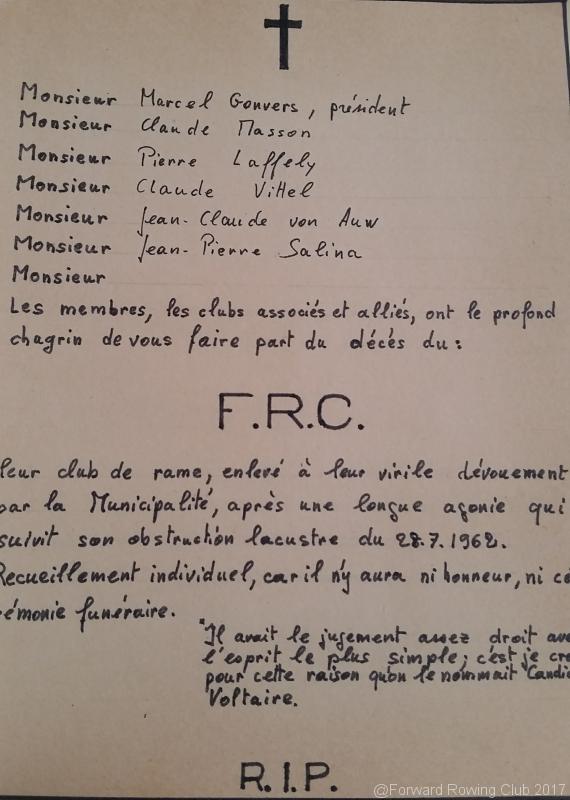 Monsieur Marcel Gonvers, président
Monsieur Claude Masson
Monsieur Pierre Laffely
Monsieur Claude Vittel
Monsieur Jean-Claude von Auw
Monsieur Jean-Pierre Salina
Monsieur
Les membres, les clubs associés et alliés, ont le profond
chagrin de vous faire part du décés du:
F.R.C.
leur club de rame, enlevé à leur virile dévouement
par la Municipalité, après une longue agonie qui
suivit son obstruction lacustre du 28.7.1962.
Recueillement individuel, car il n'y aura ni honneur, ni cé
rémonie funéraire.
"Il avait le jugement assez droit ave
l'esprit le plus simple; c'est je cro
pour cette raison qu'on le nommait Candi
Voltaire.
R.I.P.
@Forward Rowing Club 2017